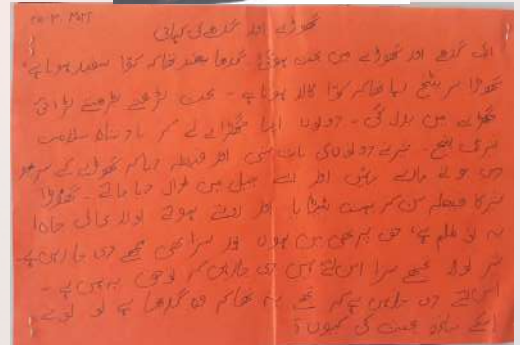 گھوڑے اور گدھے کی کہانی
ایک گدھے اور گھوڑے میں بحث ہوگئی گدھا بضد تھا کہ کوّا سفید ہوتا ہے
گھوڑا سر پٹخ رہا تھا کہ کوّا کالا ہوتا ہے۔ بحث بڑھتے بڑھتے لڑائی
جھگڑے میں بدل گئی۔ دونوں اپنا جھگڑا لے کر بادشاہ سلامت
شیر کی پہنچے۔ شیر نے دونوں کی بات سنی اور فیصلہ دیا کہ گھوڑے کے سر سو
دی جوتے مارے جائیں اور اسے جیل میں ڈال دیا جائے۔ گھوڑا
شیر کا فیصلہ سن کر بہت اور روتے ہوئے بولا عالی جاہ!
یہ تو ظلم ہے، حق پر بھی میں ہوں اور سزا بھی مجھے دی جا رہی ہے۔
شیر بولا تجھے سزا اس لئے نہیں دی جا رہی کہ تو حق پر نہیں ہے۔
اس لئے دی جا رہی ہے کہ تجھے پتہ تھا کہ وہ گدھا ہے تو تو نے
اسکے ساتھ بحث کی کیوں؟